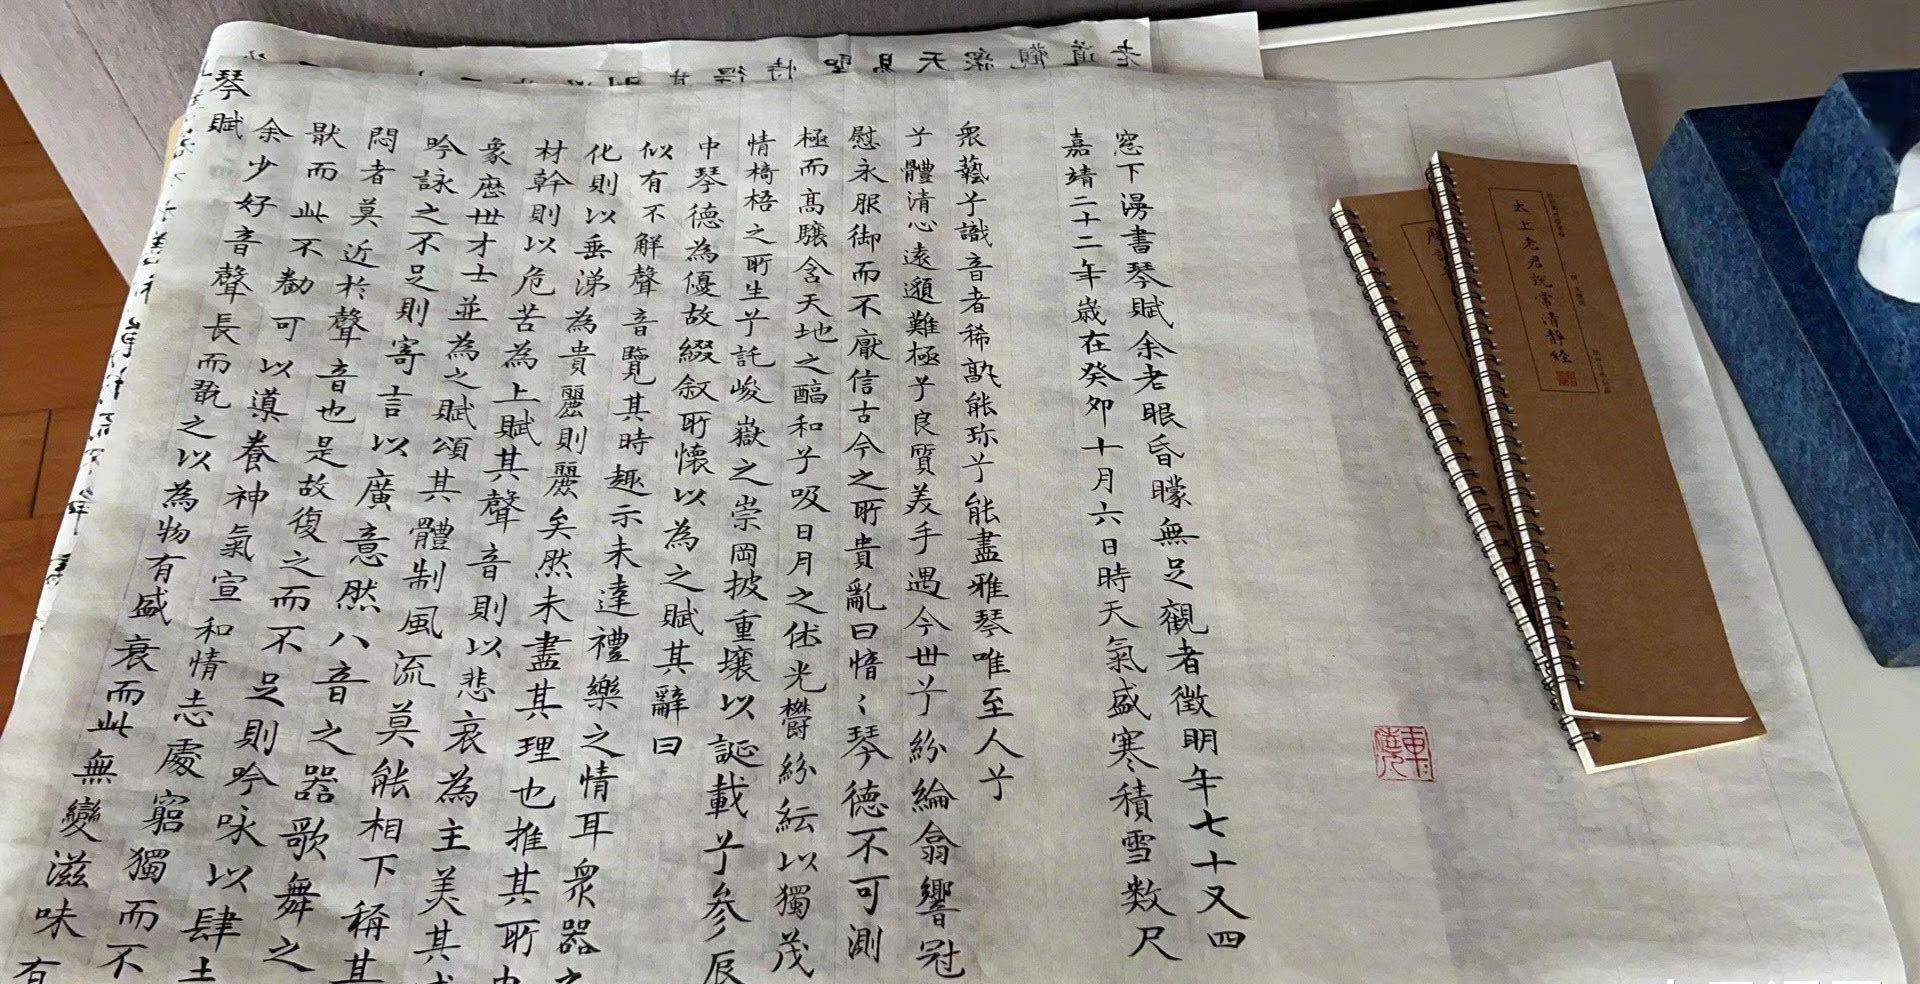 琴賦
余少好音聲長而翫之以為物有盛衰而此無變滋味有
猒而此不勌可以導養神氣宣和情志處窮獨而不
悶者莫近於聲音也是故復之而不足則吟咏以肆
吟詠之不足則寄言以廣意然八音之器歌舞之
象歷世才士並為之賦頌其體制風流莫能相下稱其
材幹則以危苦為上賦其聲音則以悲哀為主美其
化則以垂涕為貴麗則麗矣然未盡其理也推其所
似有不解聲音覽其時趣示未達禮樂之情耳眾器之
中琴德為優故綴叙所懷以為之賦其辭曰
情椅梧之所生兮託峻嶽之崇岡披重壤以誕載兮參辰
極而高驤含天地之醕和兮吸日月之休光欝紛紜以獨茂
慰永服御而不厭信古今之所貴亂曰愔〻琴德不可測
兮體清心遠邈難極兮良質美手遇今世兮紛綸翕響冠
眾藝兮識音者稀孰能珎兮能盡雅琴唯至人兮
嘉靖二十二年歲在癸卯十月六日時天氣盛寒積雪數尺
窓下漫書琴賦余老眼昏矇無足觀者徵明年七十又四
太上老君說常清靜經